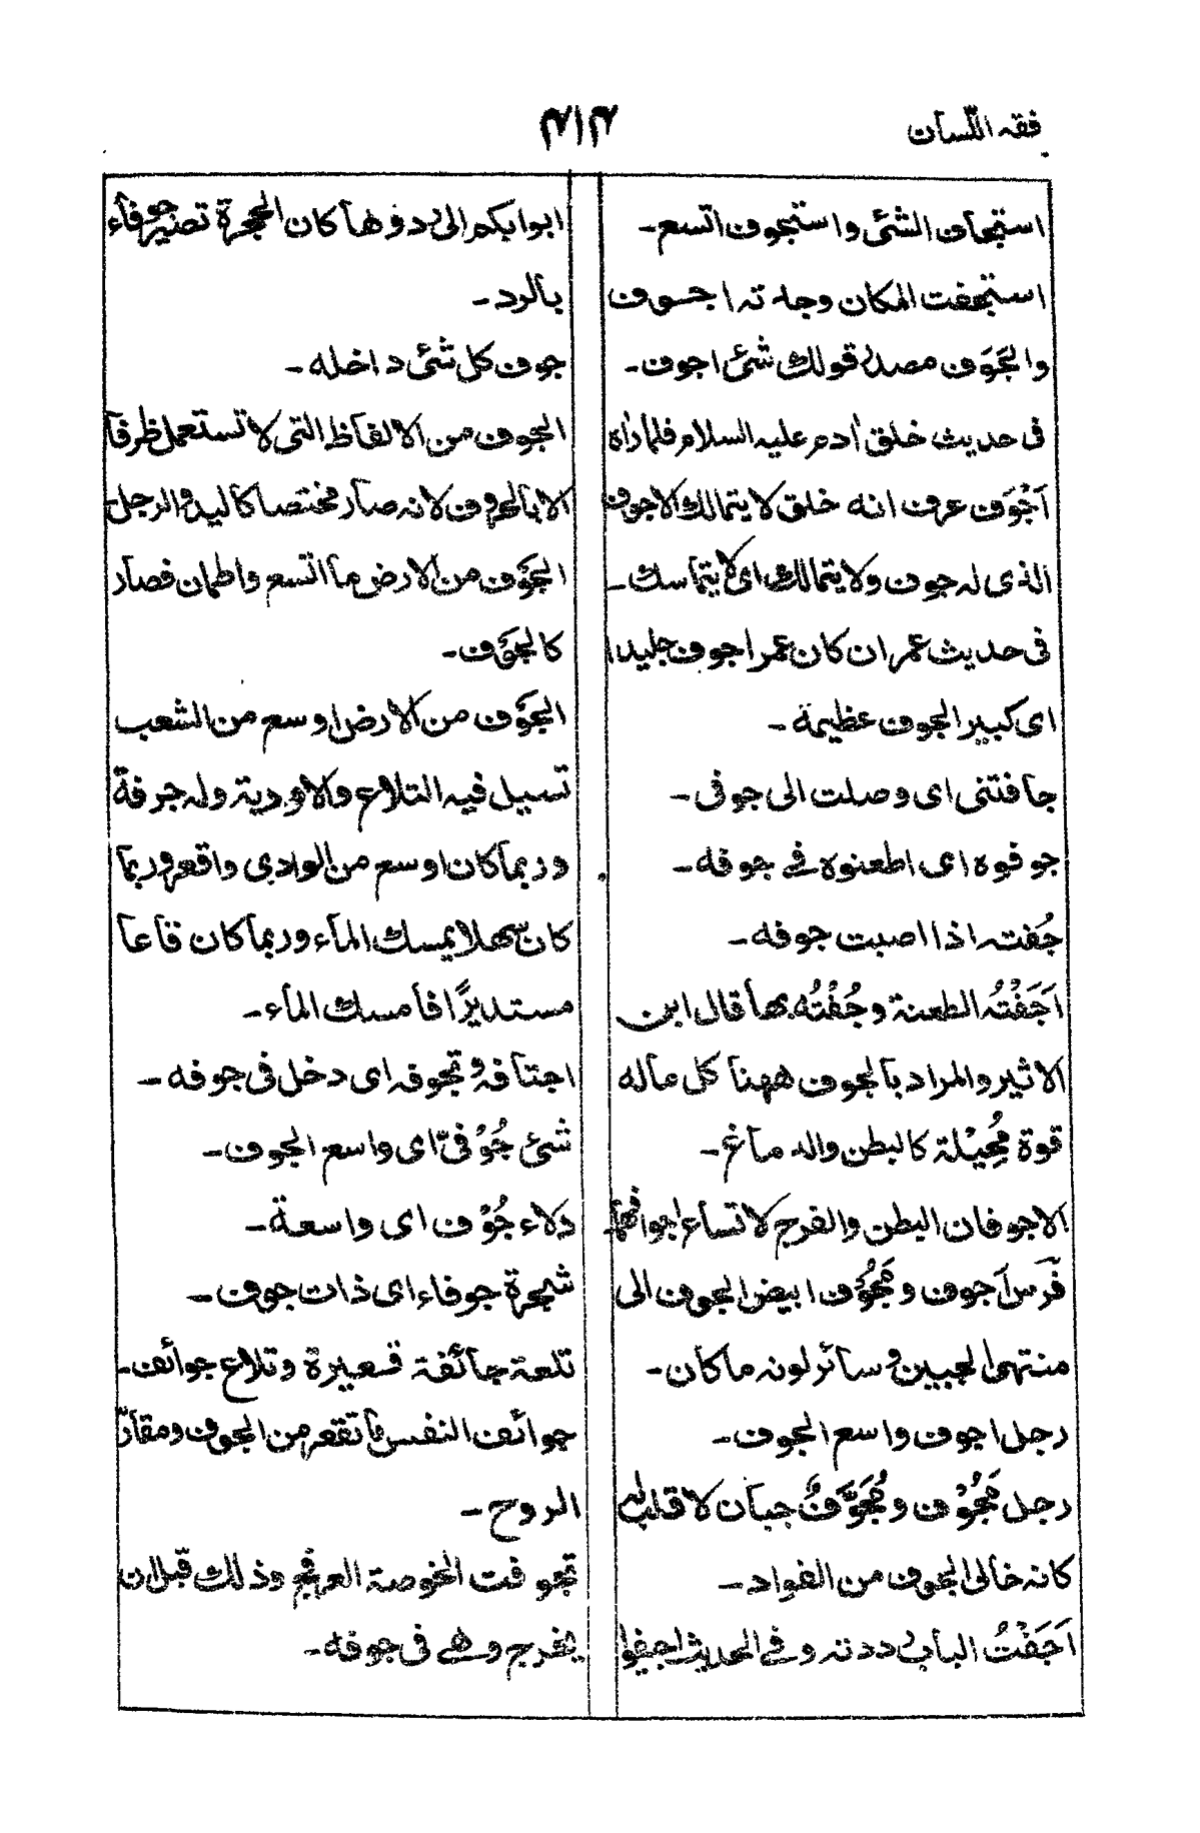 فقه اللّسان
۴۱۴
استجاف الشئی واستجوف اتسع۔
استجفت المکان وجدته اجوف
والجَوَف مصدر قولك شئی اجوف۔
فی حدیث خلق اٰدم علیه السلام فلما رأه
اَجْوَف عرف انه خلق لا یتمالك الاجوف
الذی له جوف ولا یتمالك ای لا یتماسك۔
فی حدیث عمران کان عمر اجوف جلیدا
ای کبیر الجوف عظیمة۔
جافتنی ای وصلت الی جوفی۔
جوفوه ای اطعنوه فی جوفه۔
جُفته اذا اصبت جوفه۔
اَجَفْتُه الطعنة وجُفْتُه بها قال ابن
الاثیر والمراد بالجوف ههنا کل ماله
قوة مُحِیْلة کالبطن والدماغ۔
الاجوفان البطن والفرج لاتساع اجوافهما۔
فَرَس اَجوف ومَجُوْف ابیض الجوف الی
منتهی الجبین وسائر لونه ما کان۔
رجل اجوف واسع الجوف۔
رجل مَجُوْف ومُجَوَّفٌ جبان لا قلب له
کانه خالی الجوف من الفواد۔
اَجَفْتُ الباب رددته وفی الحدیث اجیفوا
ابوابکم ای ردوها کان الحجرة تصیر جوفاء
بالرد۔
جوف کل شئی داخله۔
الجوف من الالفاظ التی لا تستعمل ظرفا
الا بالحروف لانه صار مختصا کالید والرجل
الجَوْف من الارض ما اتسع واطمان فصار
کالجَوْف۔
الجَوْف من الارض اوسع من الشعب
تسیل فیه التلاع والاودیة وله جرفة
وربما کان اوسع من الوادی واقعر وربما
کان سهلا یمسك الماء وربما کان قاعا
مستدیرًا فامسك الماء۔
اجتافه وتجوفه ای دخل فی جوفه۔
شئی جُوْفیّ ای واسع الجوف۔
دلاء جُوْف ای واسعة۔
شجرة جوفاء ای ذات جوف۔
تلعة جائفة قعیرة وتلاع جوائف۔
جوائف النفس ما تقعر من الجوف ومقارّ
الروح۔
تجوفت الخوصة العرفج وذلك قبل ان
یخرج وهی فی جوفه۔